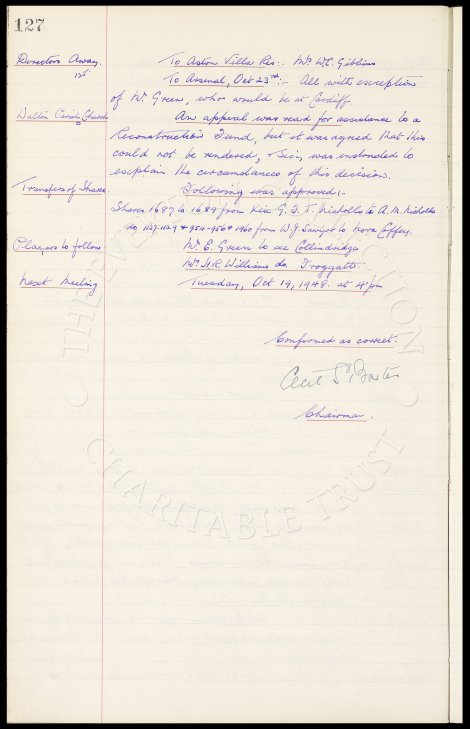 127
Directors Away.
To Aston Villa Res:. Mr W.C. Gibbins
To Arsenal, Oct 23rd:- All with exception
of Mr Green, who would be at Cardiff.
Walton Parish Church
An appeal was read for assistance to a
Reconstruction Fund, but it was agreed that this
could not be rendered, & Secy. was instructed to
explain the circumstances of this decision.
Transfers of Shares.
Following was approved:-
Shares 1687 to 1689 from G. F. T. Nicholls to A. M. Nicholls
do 1127-1129 & 955-956 & 1960 from W. J. Sawyer to Nora Caffery.
Players to follow
Mr E. Green to see Collindridge
Mr H.R. Williams do. Froggatt.
Next Meeting
Tuesday, Oct 19, 1948. at 4 pm
Confirmed as correct.
Cecil S. Baxter
Chairman.
THE EVERTON COLLECTION
CHARITABLE TRUST